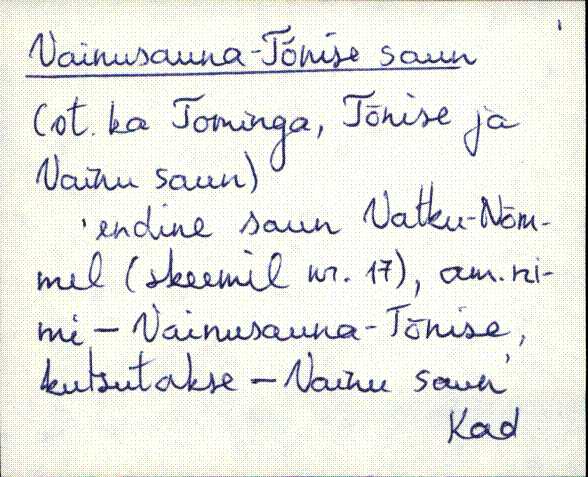 Vainusauna-Tõnise saun
(vt. ka Tominga, Tõnise ja
Vainu saun)
'endine saun Vatku-Nõm-
mel (skeemil nr. 17), am. ni-
mi – Vainusauna-Tõnise,
kutsutakse – Vainu saun'
Kad